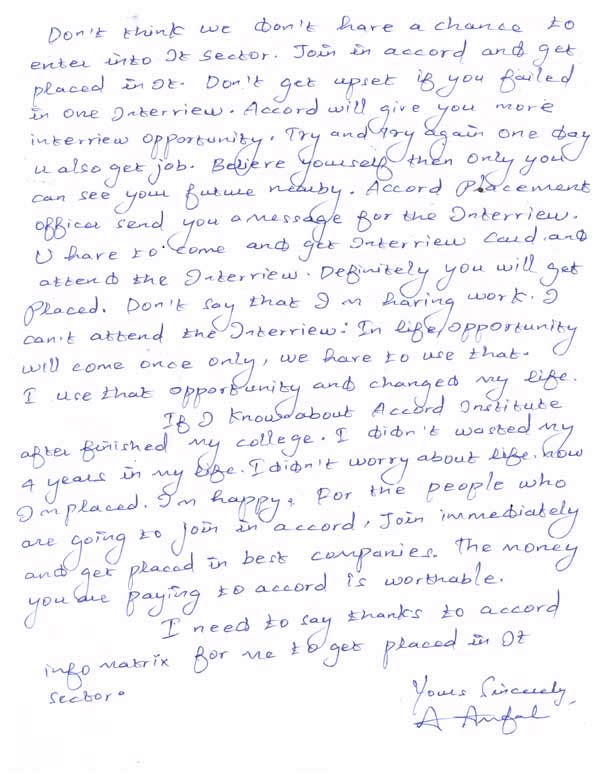 Don't think we don't have a chance to
enter into It sector. Join in accord and get
placed in It. Don't get upset if you failed
in one Interview. Accord will give you more
interview opportunity. Try and try again one day
u also get job. Believe yourself then only you
can see your future nearby. Accord Placement
officer send you a message for the Interview.
U have to come and get Interview Card and
attend the Interview. Definitely you will get
Placed. Don't say that I m having work. I
can't attend the Interview. In life, opportunity
will come once only, we have to use that.
I use that opportunity and changed my life.
If I know about Accord Institute
after finished my college. I didn't wasted my
4 years in my life. I didn't worry about life, now
I m placed. I'm happy. For the people who
are going to join in accord, Join immediately
and get placed in best companies. The money
you are paying to accord is worthable.
I need to say thanks to accord
info matrix for me to get placed in It
sector.
Yours Sincerely,
A